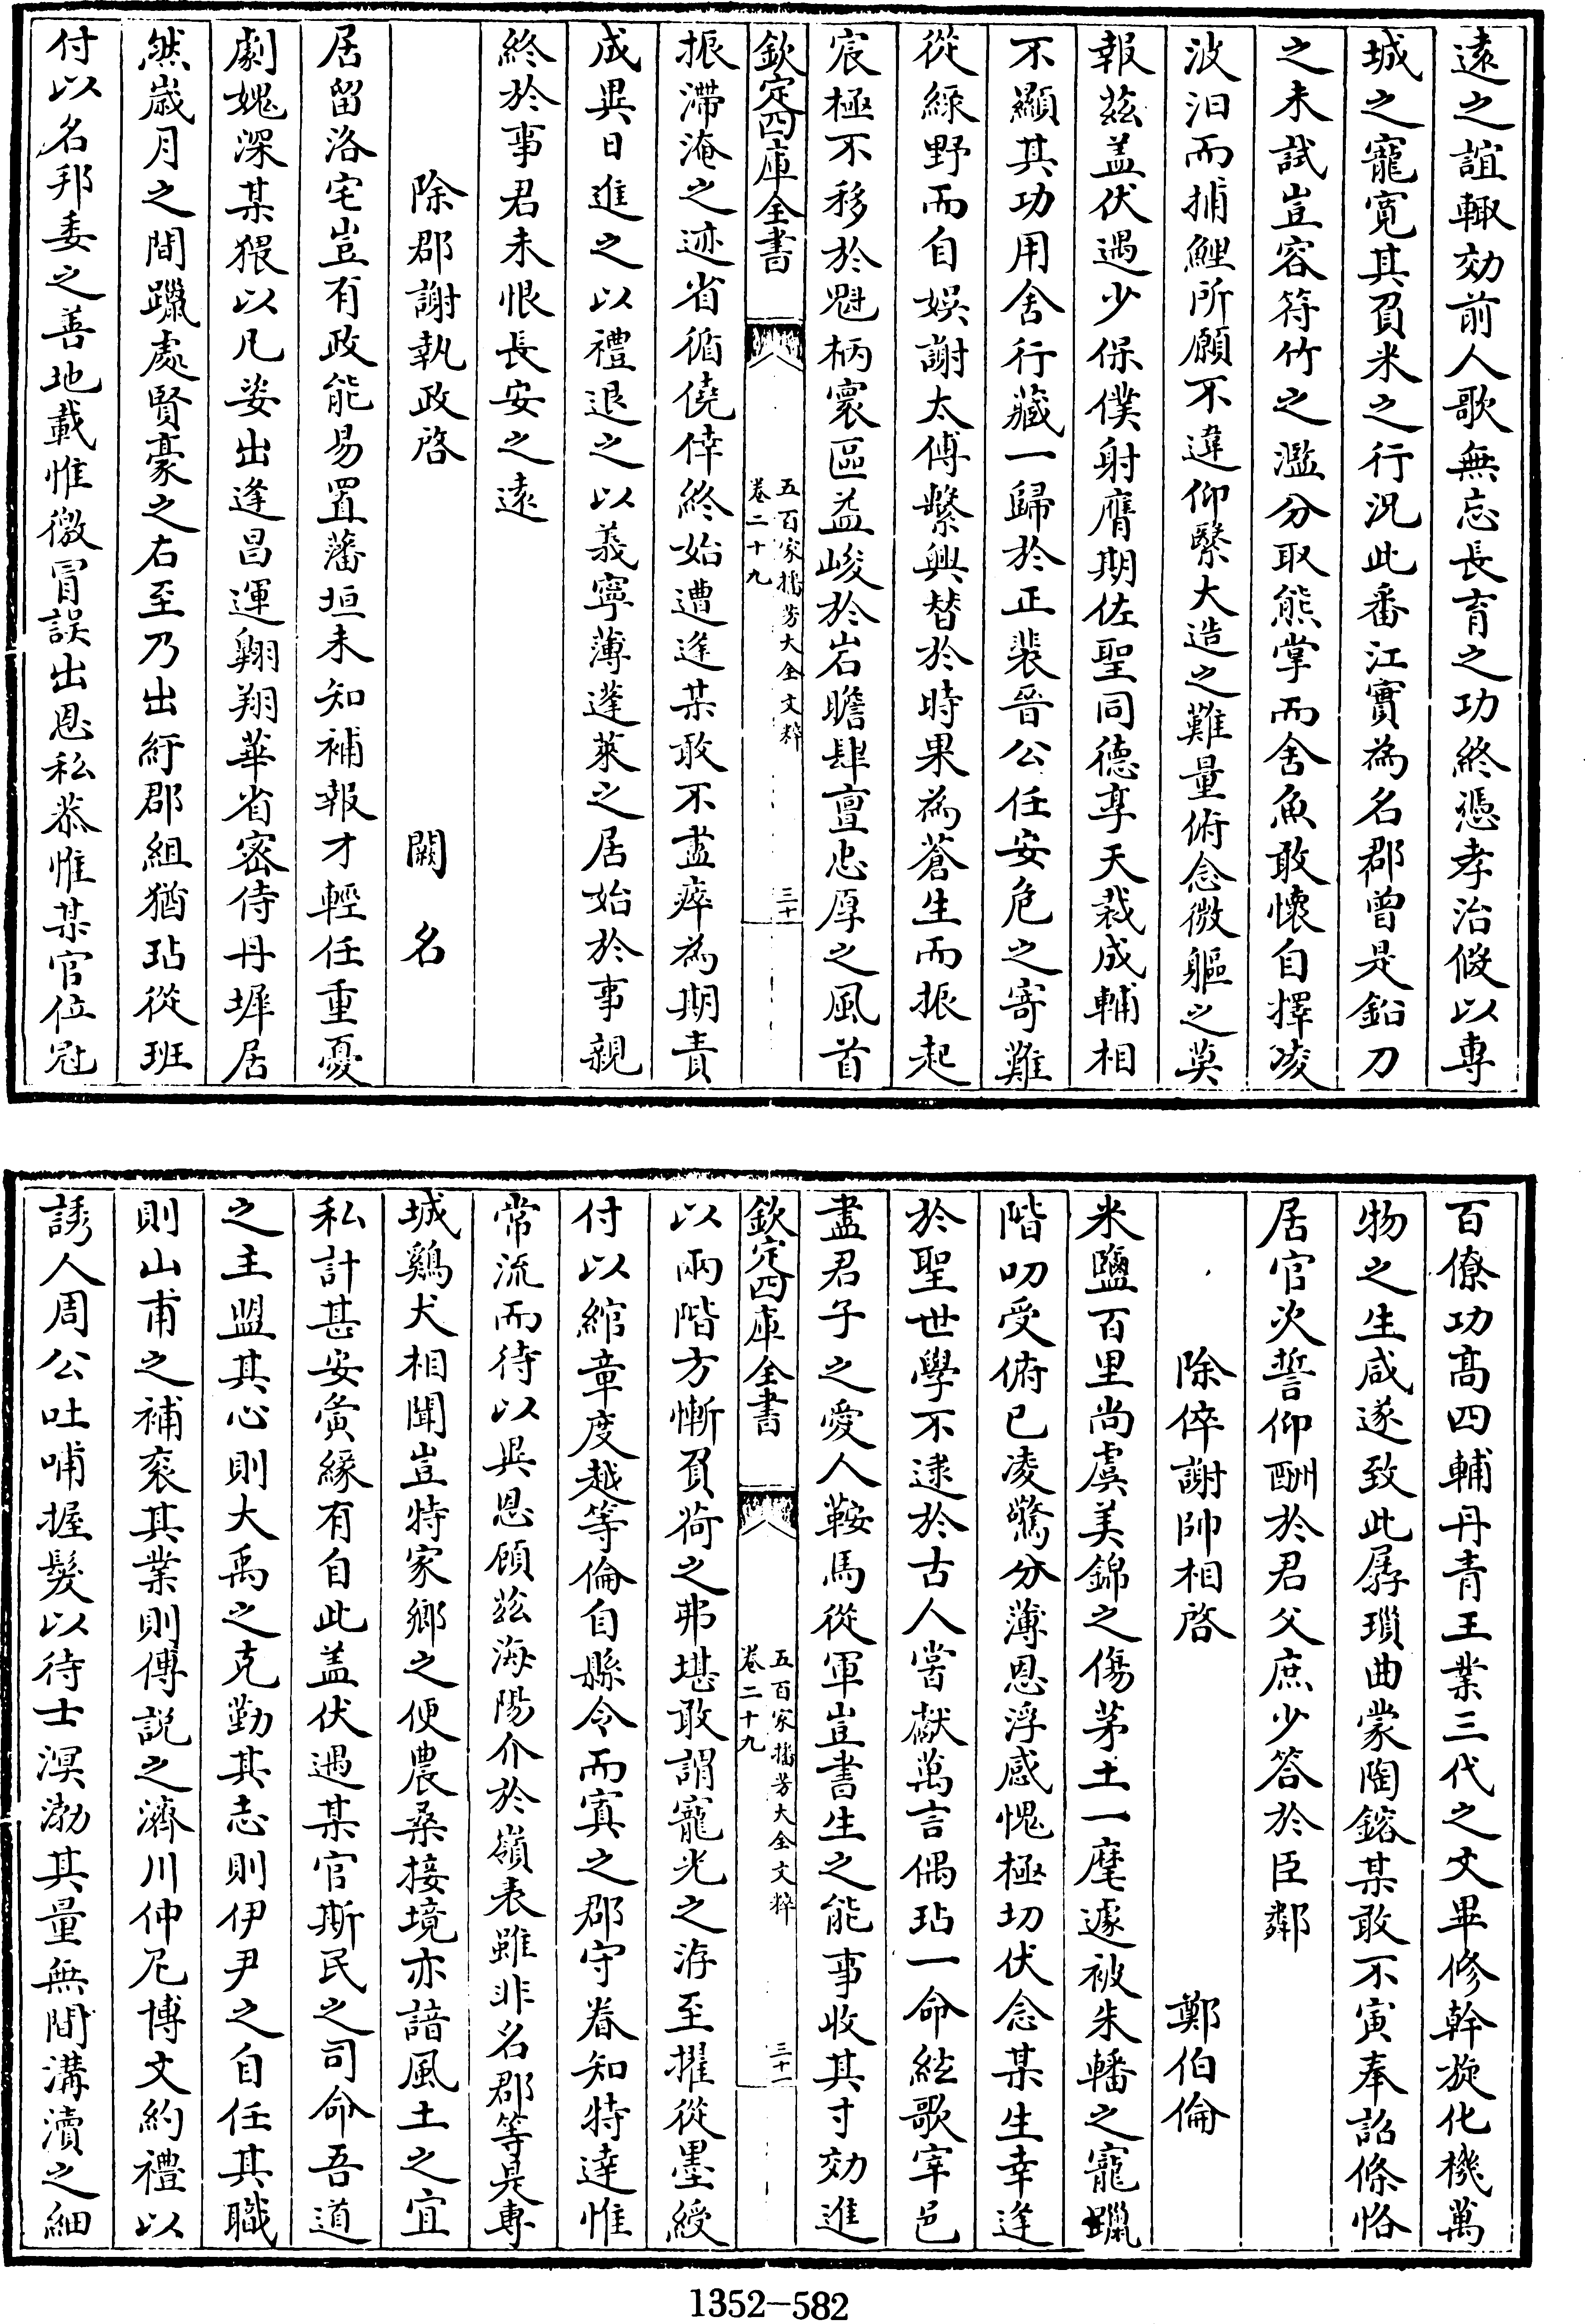 遠之誼輙効前人歌無忘長育之功終憑孝治假以專
城之寵寛其負米之行況此番江實為名郡曾是鉛刀
之未試豈容符竹之濫分取熊掌而舍魚敢懷自擇凌
波汨而捕鯉所願不違仰繄大造之難量俯念微軀之莫
報兹盖伏遇少保僕射膺期佐聖同德享天裁成輔相
不顯其功用舍行藏一歸於正裴晉公任安危之寄難
從綠野而自娱謝太傅繫興替於時果為蒼生而振起
宸極不移於魁柄寰區益峻於岩瞻肆亶忠厚之風首
欽定四庫全書
五百家播芳大全文粹
卷二十九
三十
振滯淹之迹省循僥倖終始遭逢某敢不盡瘁為期責
成異日進之以禮退之以義寧薄蓬萊之居始於事親
終於事君未恨長安之遠
除郡謝執政啓 闕名
居留洛宅豈有政能易置藩垣未知補報才輕任重憂
劇媿深某猥以凡姿出逢昌運翱翔華省密侍丹墀居
然歲月之間躐處賢豪之右至乃出紆郡組猶玷從班
付以名邦委之善地載惟徼冒誤出恩私恭惟某官位冠
百僚功髙四輔丹青王業三代之文畢修幹旋化機萬
物之生咸遂致此孱瑣曲蒙陶鎔某敢不寅奉詔條恪
居官次誓仰酬於君父庶少答於臣鄰
除倅謝帥相啓 鄭伯倫
米鹽百里尚虞美錦之傷茅土一麾遽被朱轓之寵躐
階叨受俯已凌驚分薄恩浮感愧極切伏念某生幸逢
於聖世學不逮於古人嘗獻萬言偶玷一命絃歌宰邑
盡君子之愛人鞍馬從軍豈書生之能事收其寸効進
欽定四庫全書
五百家播芳大全文粹
卷二十九
三十一
以兩階方慚負荷之弗堪敢謂寵光之洊至擢從墨綬
付以綰章度越等倫自縣令而寘之郡守眷知特達惟
常流而待以異恩顧兹海陽介於嶺表雖非名郡等是專
城鷄犬相聞豈特家鄉之便農桑接境亦諳風土之宜
私計甚安夤緣有自此盖伏遇某官斯民之司命吾道
之主盟其心則大禹之克勤其志則伊尹之自任其職
則山甫之補衮其業則傅説之濟川仲尼博文約禮以
誘人周公吐哺握髮以待士溟渤其量無間溝瀆之細
1352-582